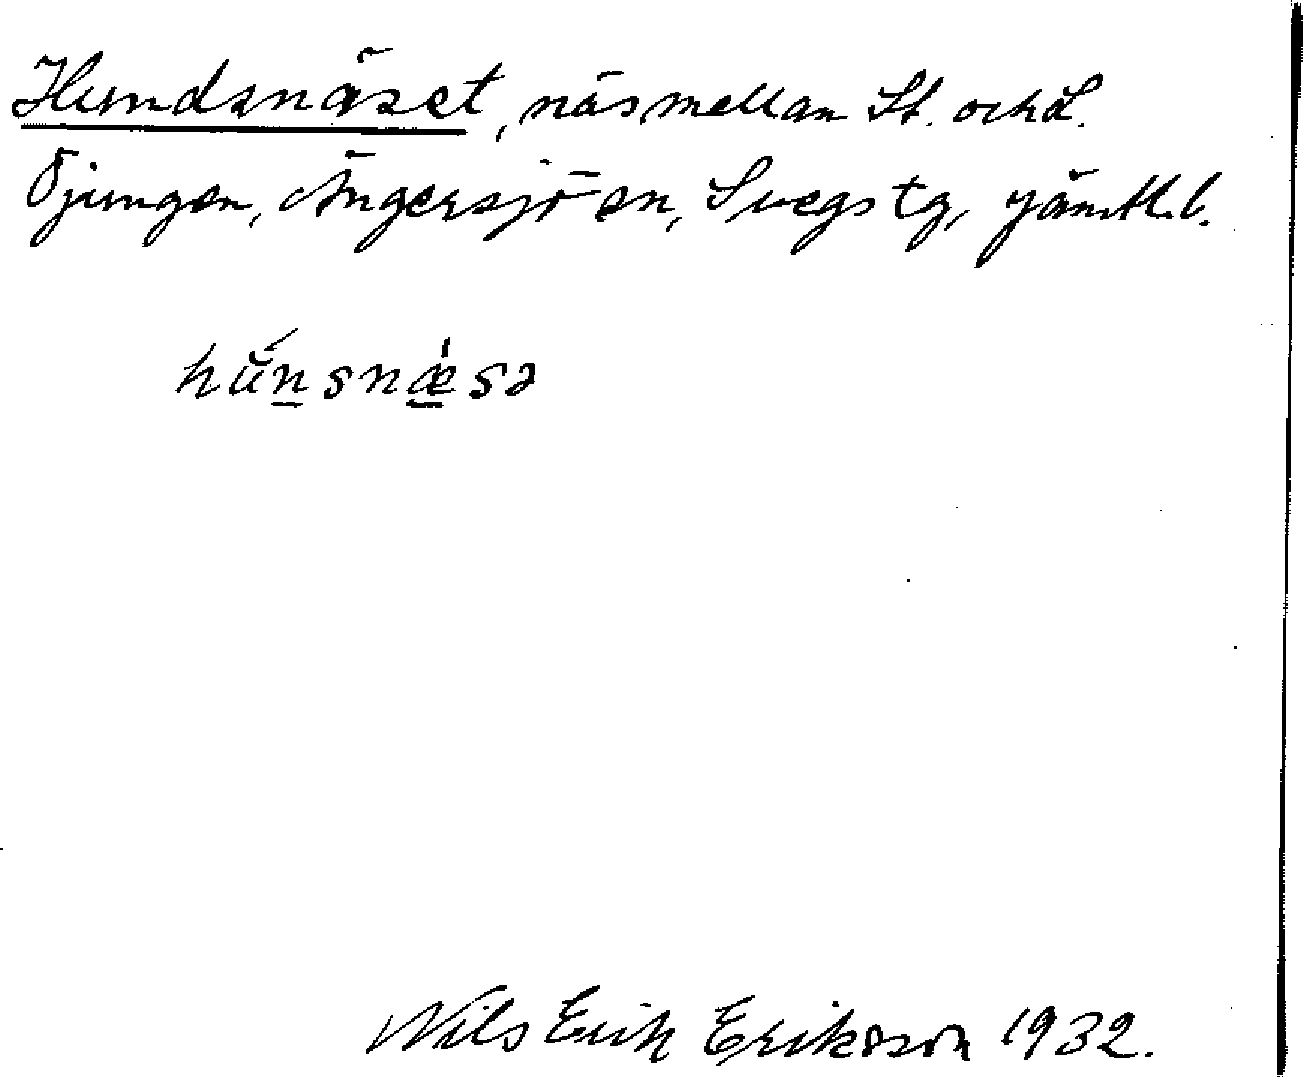 Hundsnäset, näs mellan St. och L.
Öjungen, Ängersjöen, Svegs tg, Jämtl. l.
hŭ́n̲snæ̲̍sə
Nils Erik Eriksson 1932.